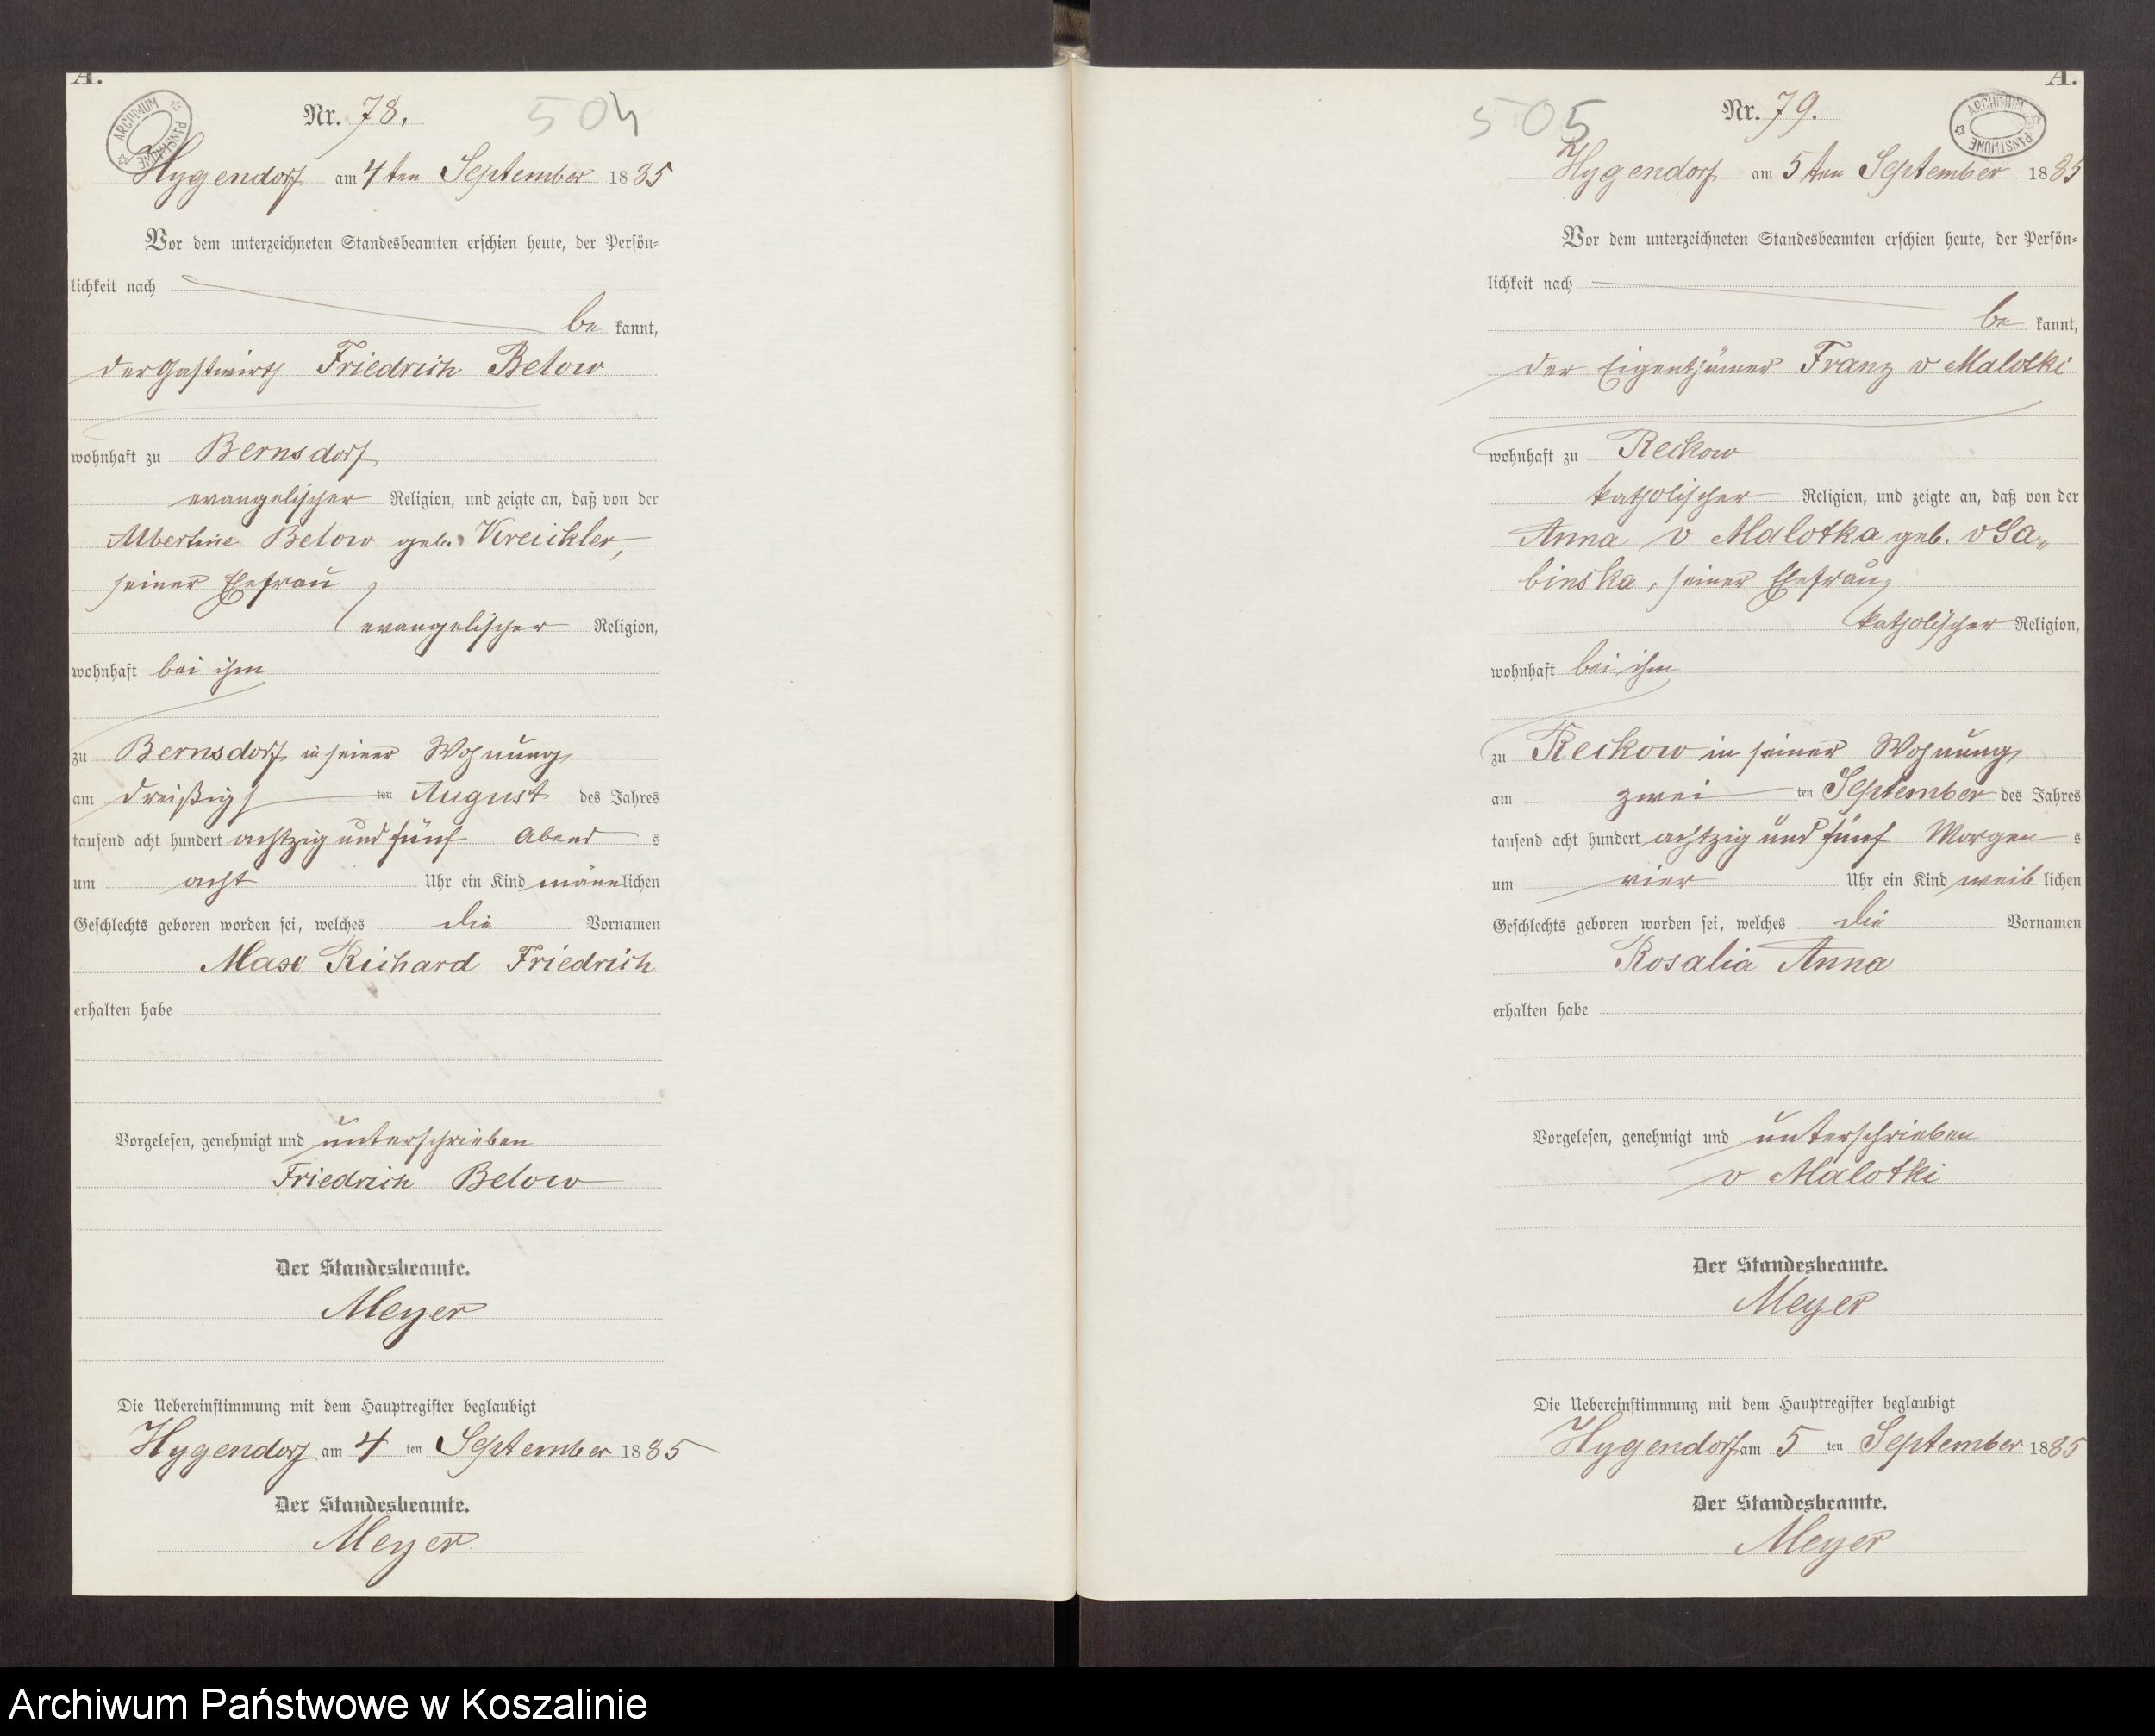 A.
ARCHIWUM PAŃSTWOWE
Nr. 78.
504
Hygendorf am 4ten September 1885
Vor dem unterzeichneten Standesbeamten erschien heute, der Persön-
lichkeit nach
be kannt,
der Gastwirth Friedrich Below
wohnhaft zu Bernsdorf
evangelischer Religion, und zeigte an, daß von der
Albertine Below geb. Kreickler,
seiner Ehefrau,
evangelischer Religion,
wohnhaft bei ihm
zu Bernsdorf in seiner Wohnung
am dreißigs ten August des Jahres
tausend acht hundert achtzig und fünf Abend s
um acht Uhr ein Kind männlichen
Geschlechts geboren worden sei, welches die Vornamen
Max Richard Friedrich
erhalten habe
Vorgelesen, genehmigt und unterschrieben
Friedrich Below
Der Standesbeamte.
Meyer
Die Uebereinstimmung mit dem Hauptregister beglaubigt
Hygendorf am 4 ten September 1885
Der Standesbeamte.
Meyer
A.
ARCHIWUM PAŃSTWOWE
505
Nr. 79.
Hygendorf am 5ten September 1885
Vor dem unterzeichneten Standesbeamten erschien heute, der Persön-
lichkeit nach
be kannt,
der Eigenthümer Franz v Malotki
wohnhaft zu Reckow
katholischer Religion, und zeigte an, daß von der
Anna v Malotka geb. v Sa„
binska, seiner Ehefrau,
katholischer Religion,
wohnhaft bei ihm
zu Reckow in seiner Wohnung
am zwei ten September des Jahres
tausend acht hundert achtzig und fünf Morgen s
um vier Uhr ein Kind weib lichen
Geschlechts geboren worden sei, welches die Vornamen
Rosalia Anna
erhalten habe
Vorgelesen, genehmigt und unterschrieben
v Malotki
Der Standesbeamte.
Meyer
Die Uebereinstimmung mit dem Hauptregister beglaubigt
Hygendorf am 5 ten September 1885
Der Standesbeamte.
Meyer
Archiwum Państwowe w Koszalinie